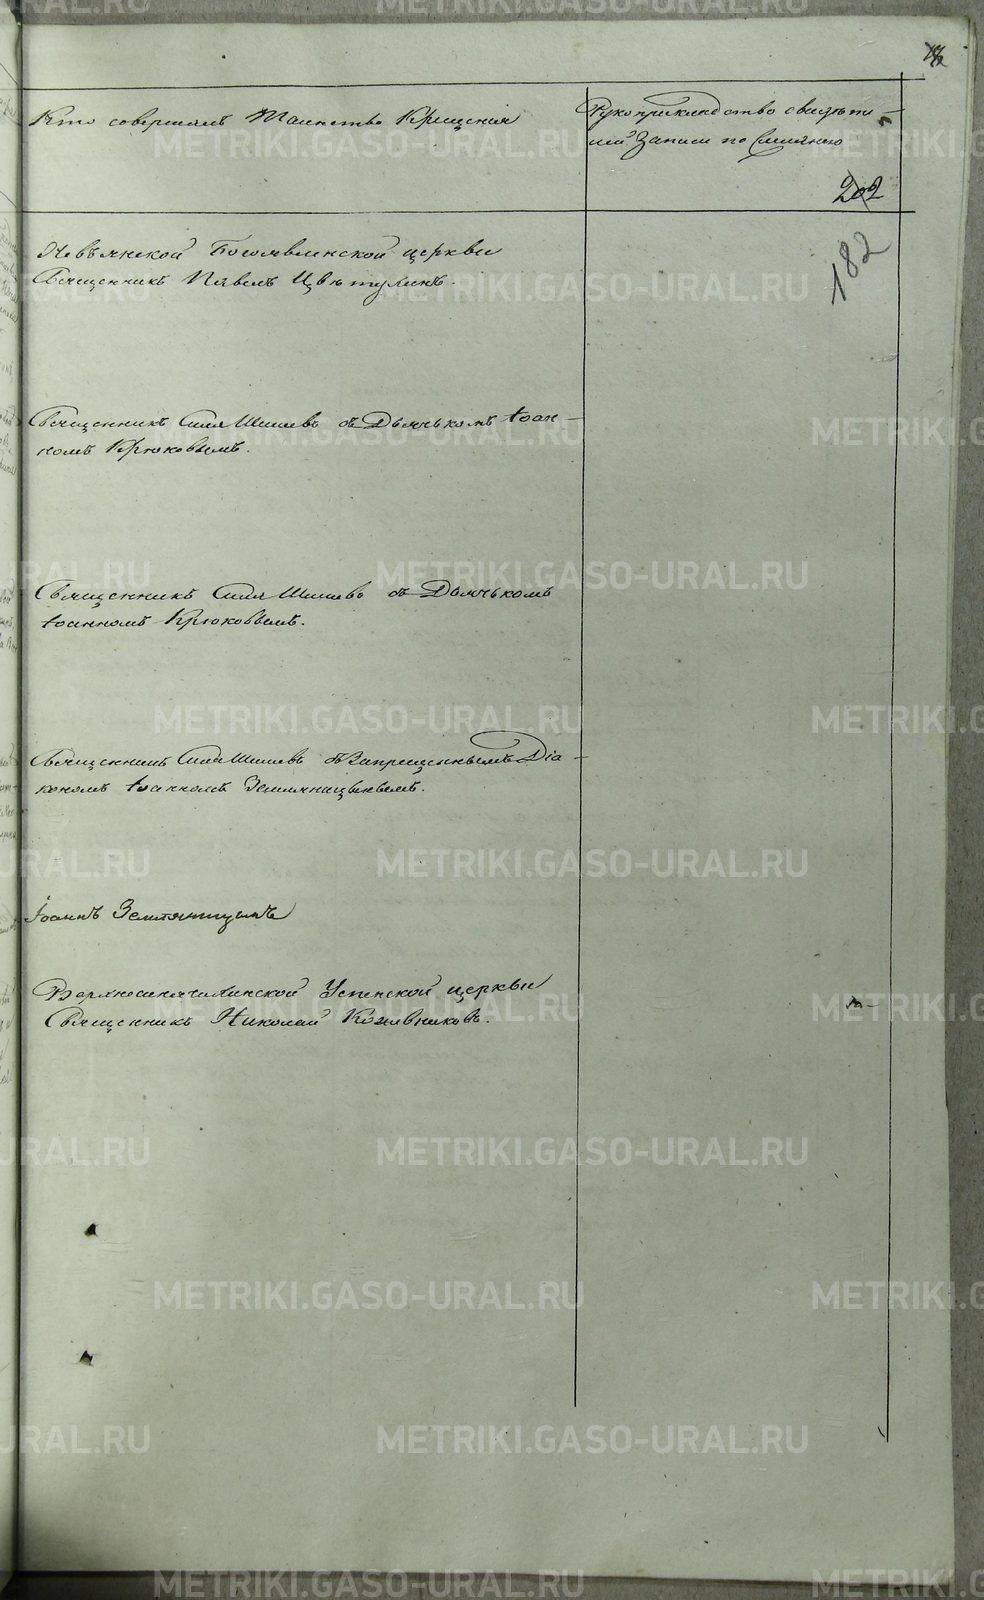 Кто совершалъ Таинство Крещенія
Рукоприкладство свидѣте-
лей Записи по Желанію
202
182
Невьянской Богоявленской церкви
Священникъ Павелъ Цвѣтухинъ.
Священникъ Сила Шишевъ съ Дьячькомъ Іоан-
номъ Крюковымъ.
Священникъ Сила Шишевъ съ Дьячькомъ
Іоанномъ Крюковымъ.
Священникъ Сила Шишевъ съ Запрещеннымъ Діа-
кономъ Іоанномъ Земляницынымъ.
Іоаннъ Земляницынъ
Священникъ Николай Кожевниковъ.
Успенской церкви
METRIKI.GASO-URAL.RU